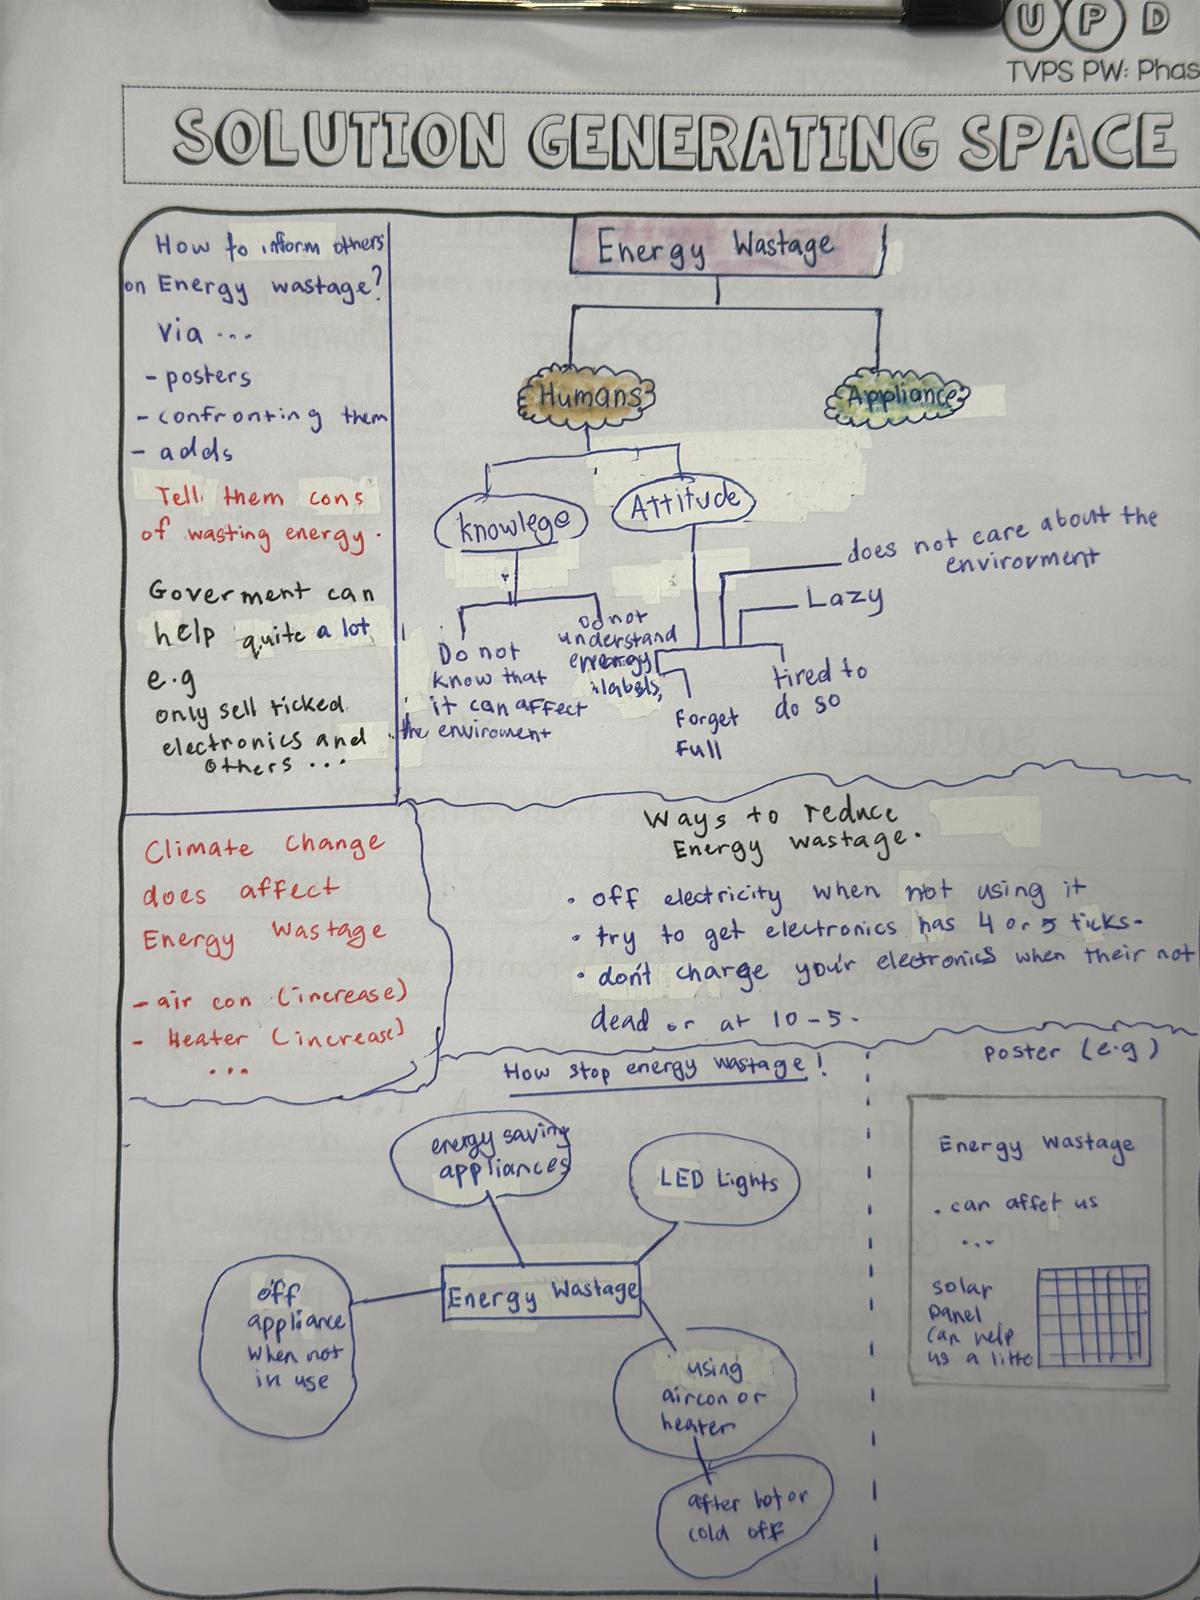 U P D
TVPS PW: Phas
SOLUTION GENERATING SPACE
How to inform others
on Energy wastage?
via ...
- posters
- confronting them
- adds
Tell them cons
of wasting energy.
Goverment can
help quite a lot
e.g
only sell ticked
electronics and
others ...
Energy Wastage
Humans
Appliance
knowlege
Attitude
does not care about the
enviroment
Lazy
tired to
do so
Forget
Full
Do not
understand
energy
labels,
Do not
know that
it can affect
the enviroment
Climate change
does affect
Energy Wastage
- air con (increase)
- Heater (increase)
...
Ways to reduce
Energy wastage.
• off electricity when not using it
• try to get electronics has 4 or 5 ticks-
• don't charge your electronics when their not
dead or at 10-5.
How stop energy wastage!
energy saving
appliances
LED Lights
off
appliance
when not
in use
Energy Wastage
using
aircon or
heater
after hot or
cold off
poster (e.g)
Energy wastage
. can affet us
...
solar
panel
can help
us a litte